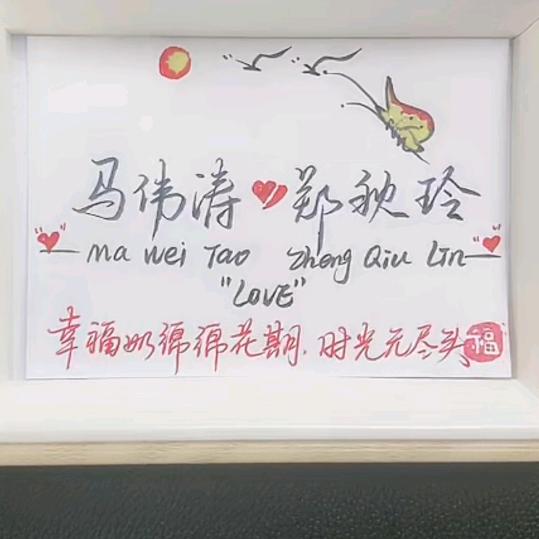 马伟涛 郑秋玲
ma wei Tao Zheng Qiu Lin
"LOVE"
幸福如绵绵花期.时光无尽头 福